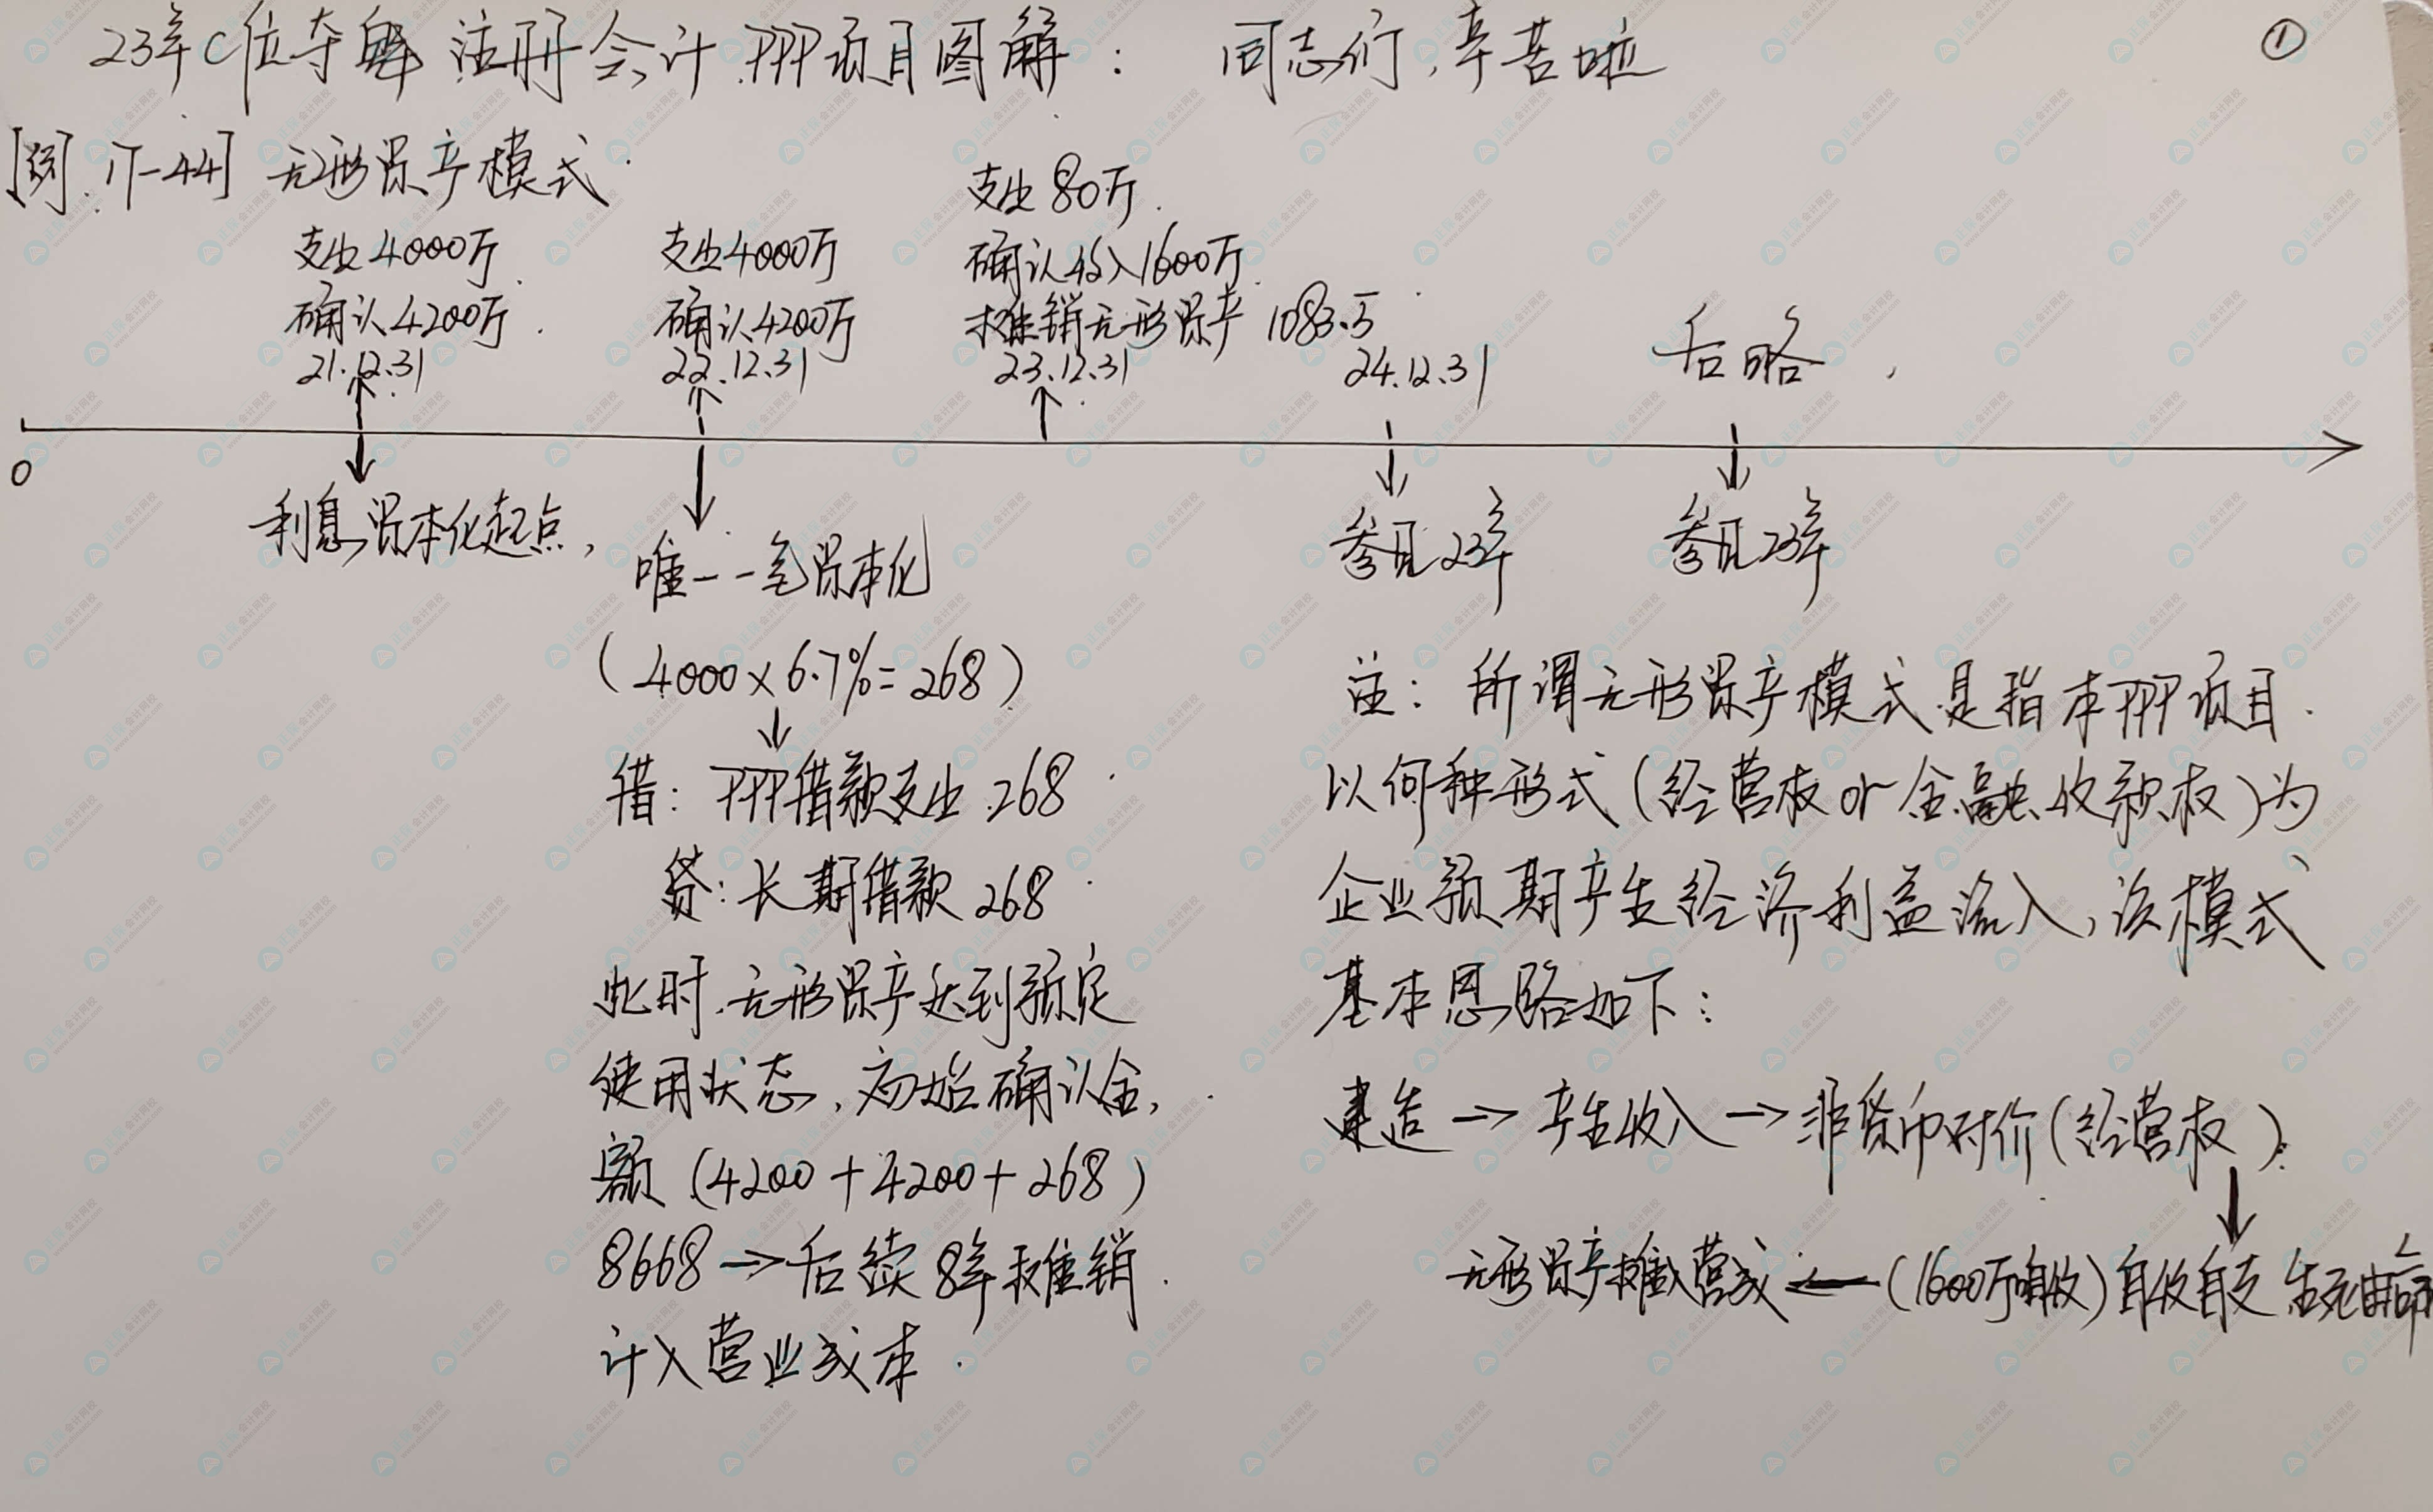 23年C位夺魁 注册会计 PPP项目图解： 同志们，辛苦啦 ①
[例.17-44] 无形资产模式
支出4000万
确认4200万
21.12.31
支出4000万
确认4200万
22.12.31
支出80万
确认收入1600万
摊销无形资产 1083.5
23.12.31
24.12.31
后略
0
利息资本化起点，
唯一一笔资本化
(4000×6.7%=268)
借：PPP借款支出 268
贷：长期借款 268
此时无形资产达到预定
使用状态，初始确认金
额 (4200+4200+268)
8668→后续8年摊销
计入营业成本
参见23年
参见23年
注：所谓无形资产模式是指本PPP项目
以何种形式(经营权or金融收款权)为
企业预期产生经济利益流入，该模式
基本思路如下：
建造→产生收入→非货币对价(经营权)
↓
无形资产摊入营成←(1600万自收)自收自支 生死由命
正保会计网校
www.chinaacc.com